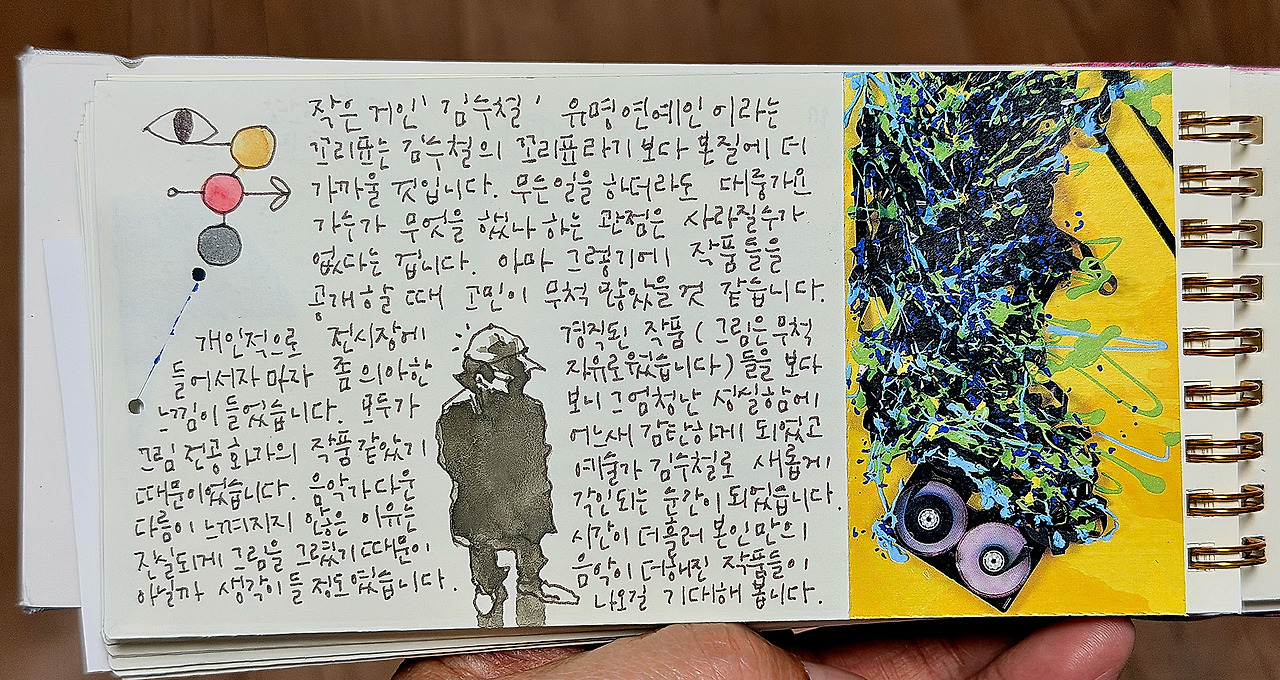 작은 거인 '김수철' 유명연예인이라는
꼬리표는 김수철의 꼬리표라기 보다 본질에 더
가까울 것입니다. 무슨일을 하더라도 대중가요
가수가 무엇을 했나 하는 관점은 사라질수가
없다는 겁니다. 아마 그렇기에 작품들을
공개할 때 고민이 무척 많았을것 같습니다.
개인적으로 전시장에
들어서자마자 좀 의아한
느낌이 들었습니다. 모두가
그림 전공 화가의 작품같았기
때문이었습니다. 음악가다운
다름이 느껴지지 않은 이유는
진실되게 그림을 그렸기 때문이
아닐까 생각이 들 정도였습니다.
경직된 작품(그림은 무척
자유로웠습니다)들을 보다
보니 그 엄청난 성실함에
어느새 감탄하게 되었고
예술가 김수철로 새롭게
각인되는 순간이 되었습니다.
시간이 더 흘러 본인만의
음악이 더해진 작품들이
나오길 기대해 봅니다.